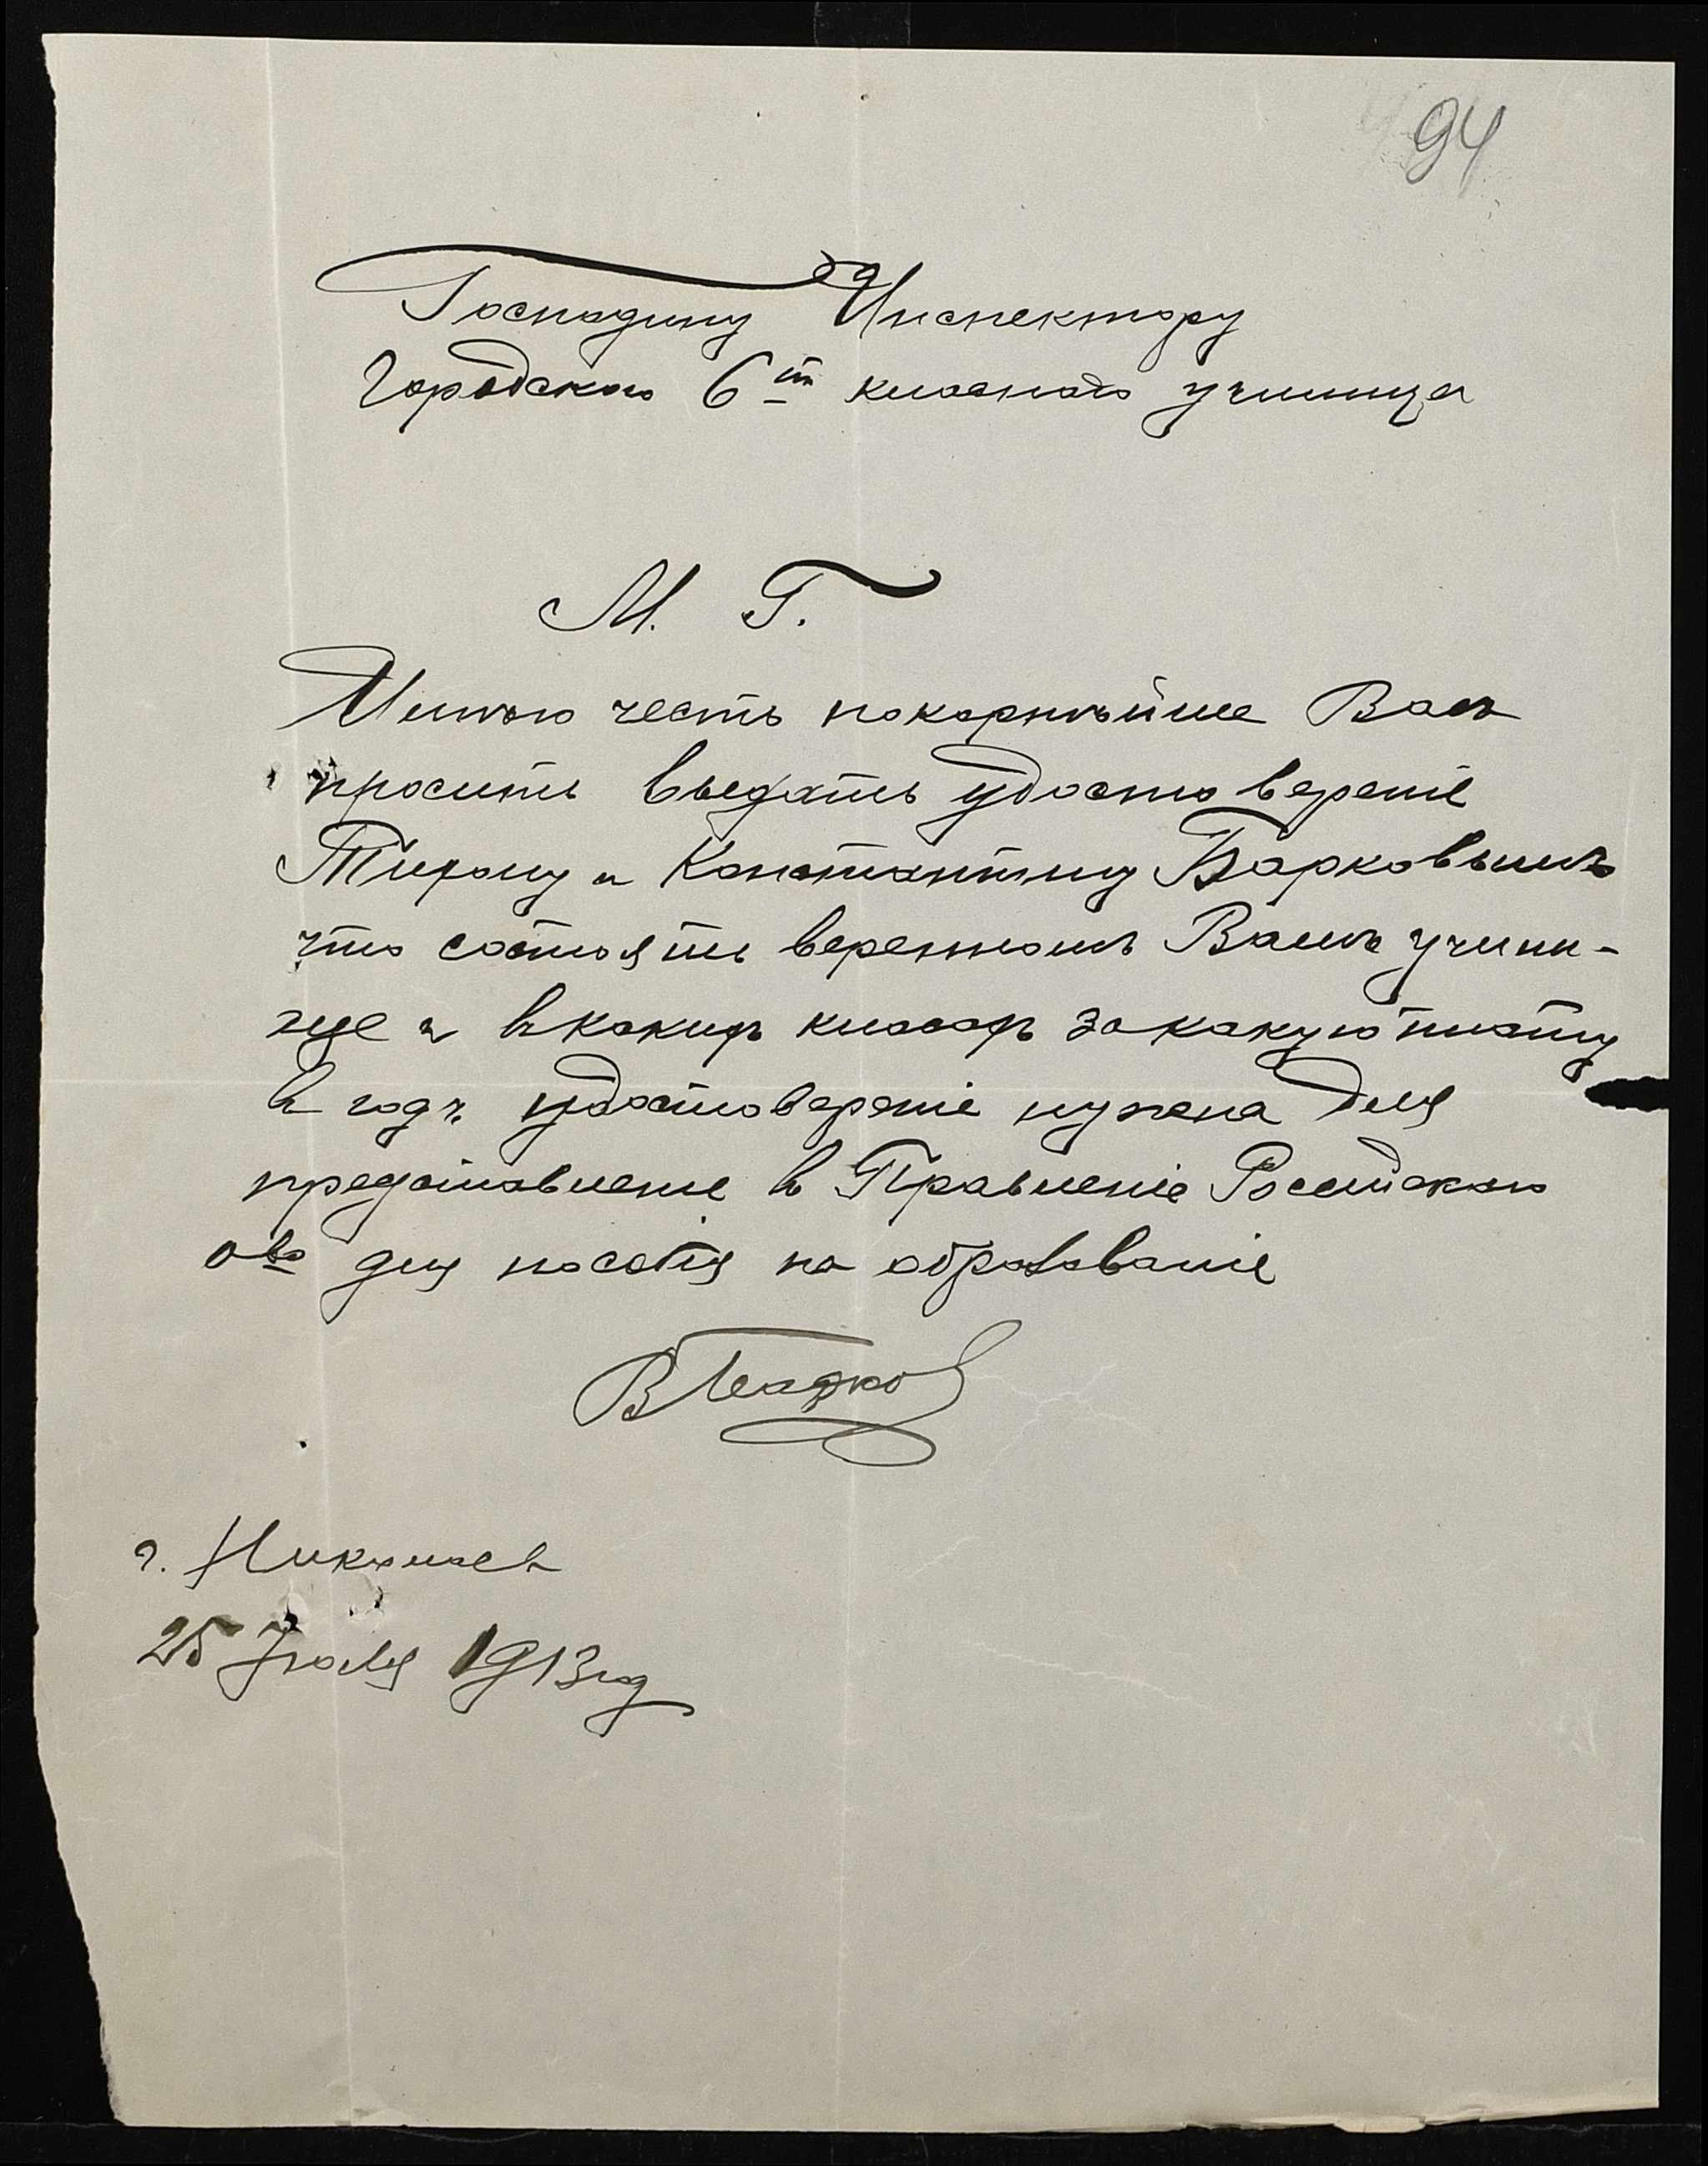 94
Господину Инспектору
Городского 6 т классного училища
М. Г.
Имѣю честь покорнѣйше Васъ
просить выдать удостоверенiе
и Константину Барковымъ
что состоять веренномъ Вамъ учили-
ще и въ какихъ классахъ за какую плату
в годъ удостоверенiе нужна для
представленiе в Правленiе Россiйскаго
о во для пособiя на образованiе
В Барков
г. Николаев
25 Iюля 1913 год